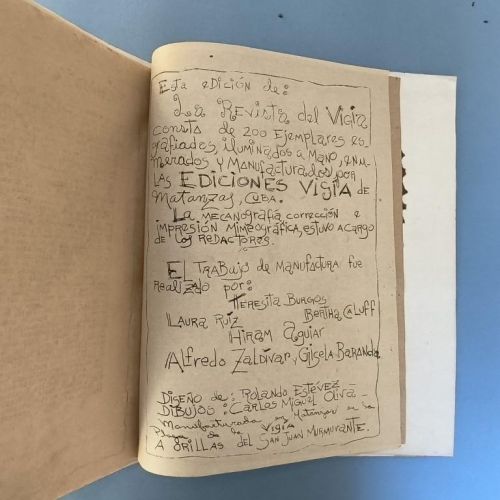 Esta edición de:
La Revista del Vigía
consta de 200 Ejemplares es
grafiades, iluminados a mano, enu-
merados y manufacturados por
LAS EDICIONES VIGÍA de
Matanzas, Cuba.
La mecanografía, corrección e
impresión mimeográfica, estuvo a cargo
de los redactores.
El trabajo de manufactura fue
realizado por:
Teresita Burgos
Bertha Caluff
Laura Ruíz
Hiram Aguiar
Alfredo Zaldívar y Gilsela Baranda
Diseño de: Rolando Estévez
Dibujos: Carlos Miguel Oliva
Manufacturada en Matanzas en la
Plaza de la Vigía
A orillas del San Juan murmurante.